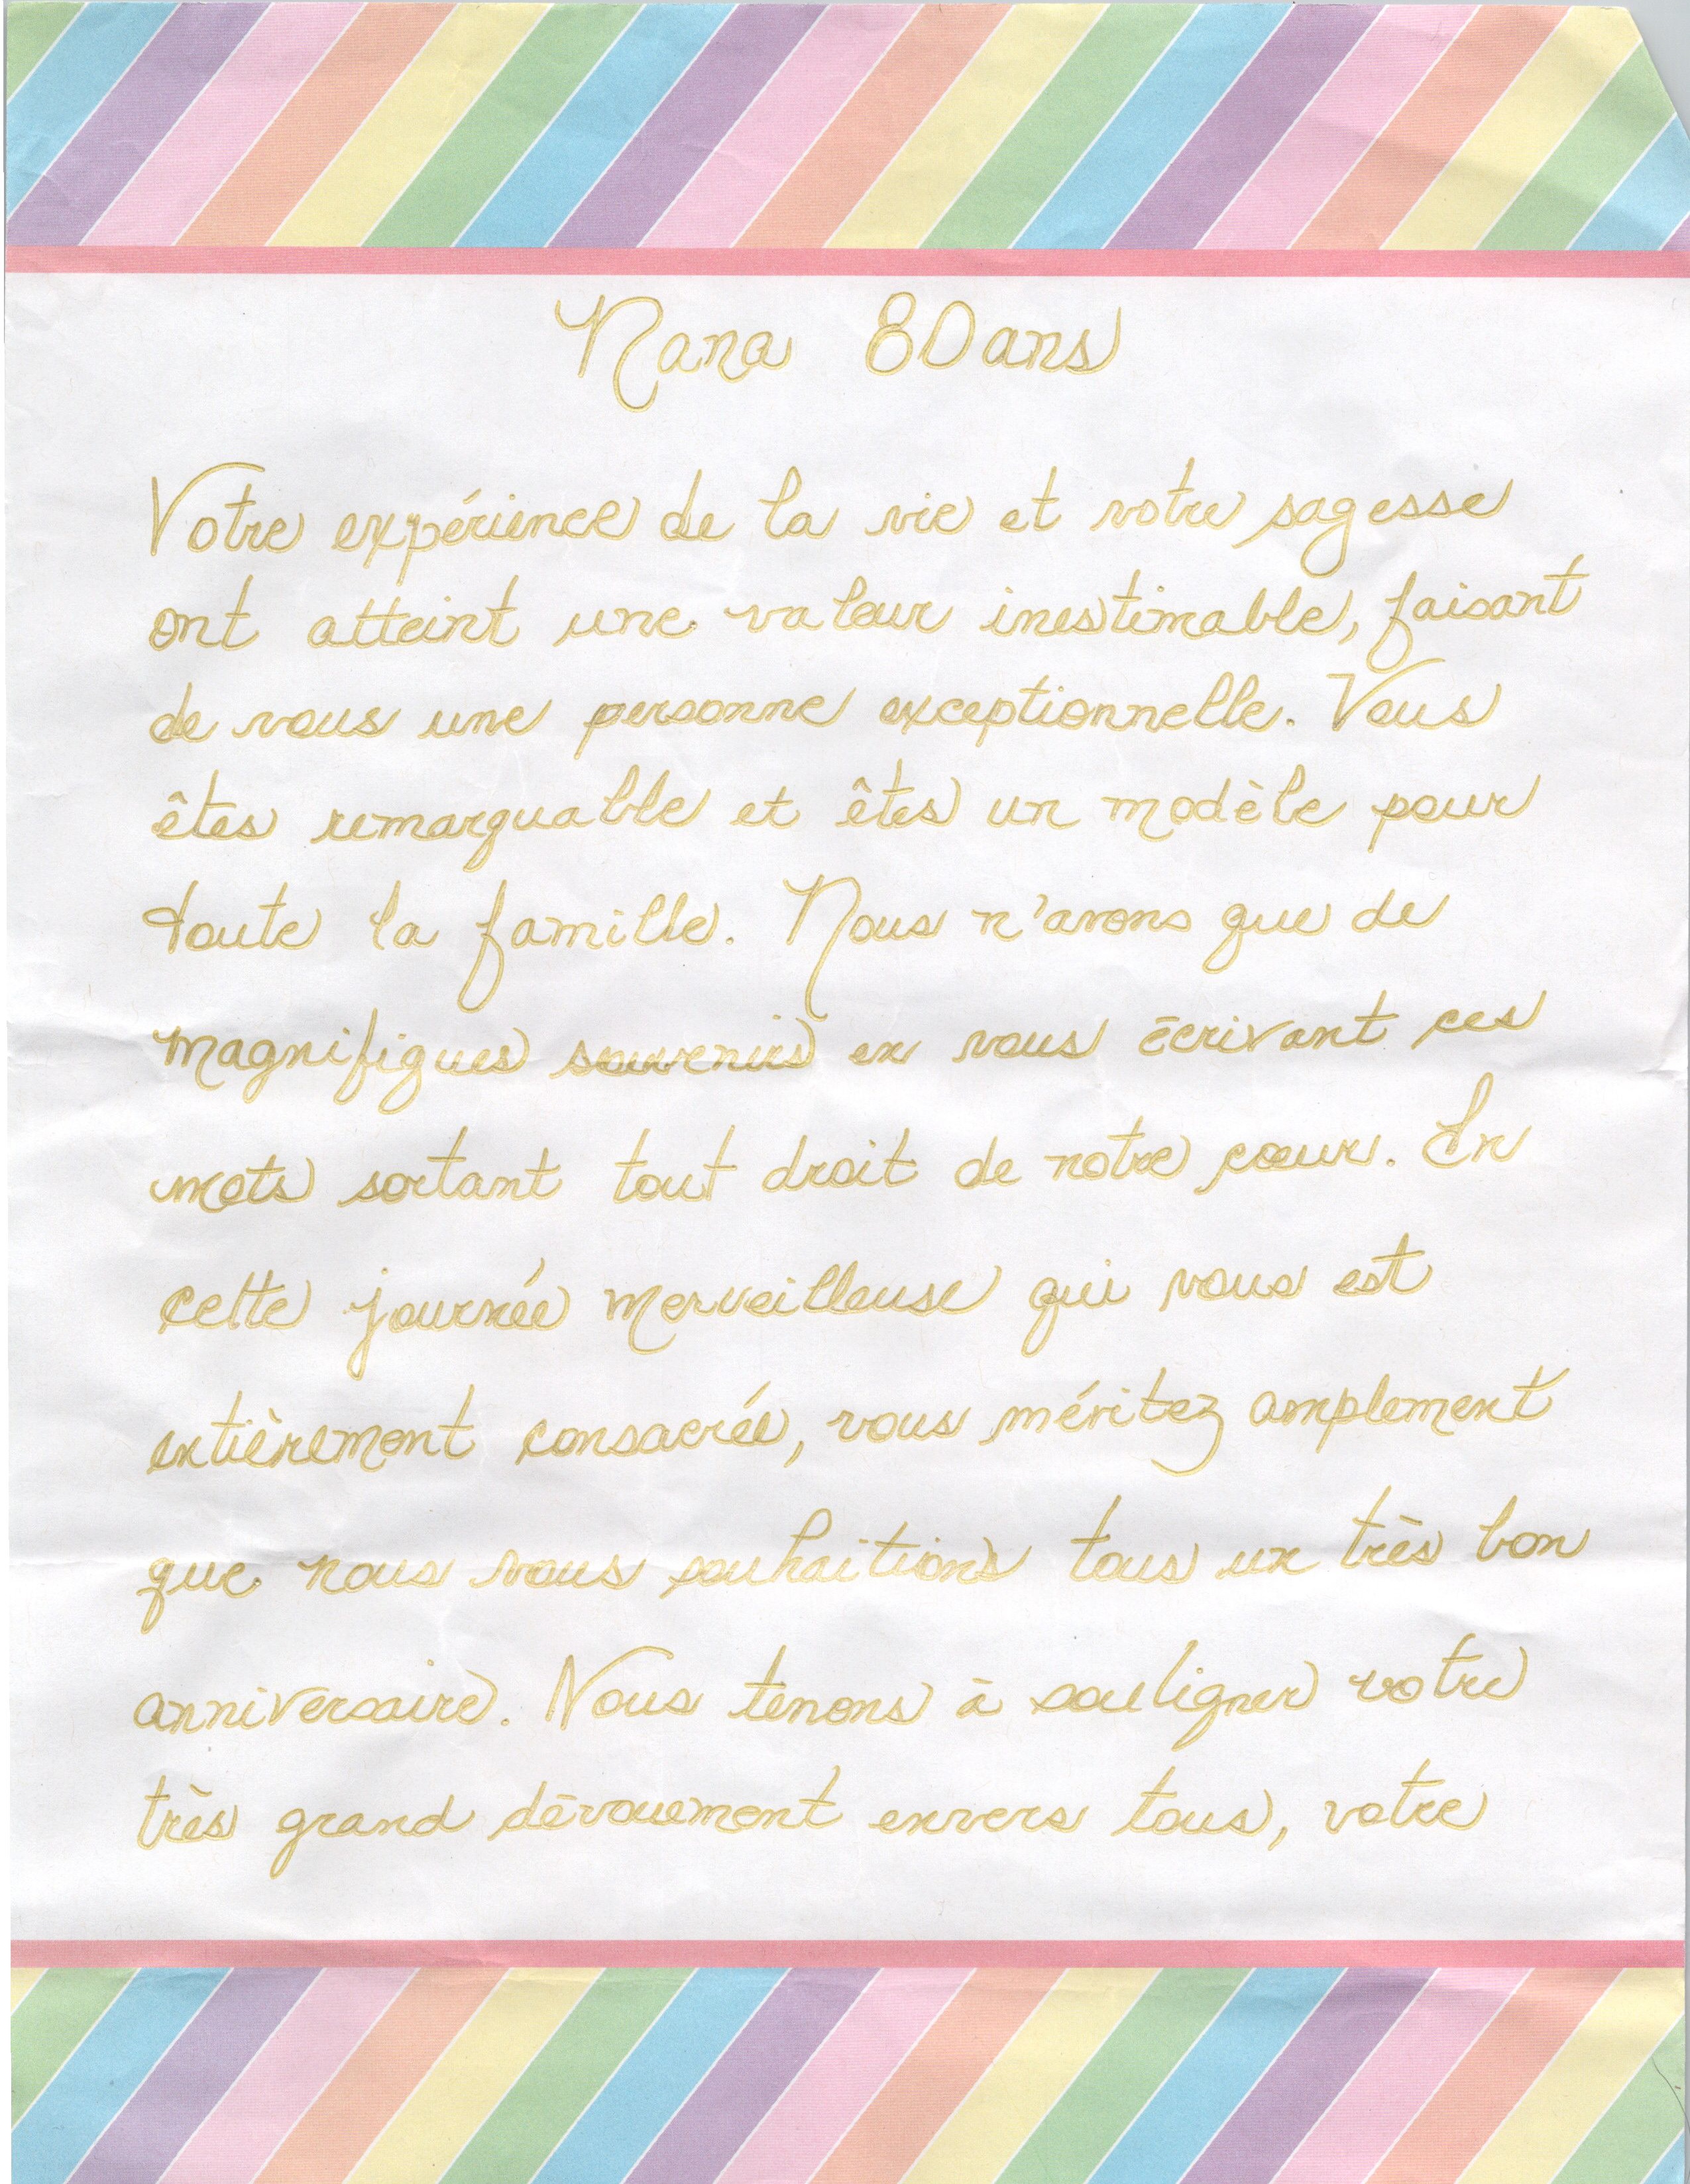 Nana 80ans
Votre expérience de la vie et votre sagesse
ont atteint une valeur inestimable, faisant
de vous une personne exceptionnelle. Vous
êtes remarquable et êtes un modèle pour
toute la famille. Nous n'avons que de
magnifiques souvenirs en vous écrivant ces
mots sortant tout droit de notre cœur. En
cette journée merveilleuse qui vous est
entièrement consacrée, vous méritez amplement
que nous vous souhaitions tous un très bon
anniversaire. Nous tenons à souligner votre
très grand dévouement envers tous, votre